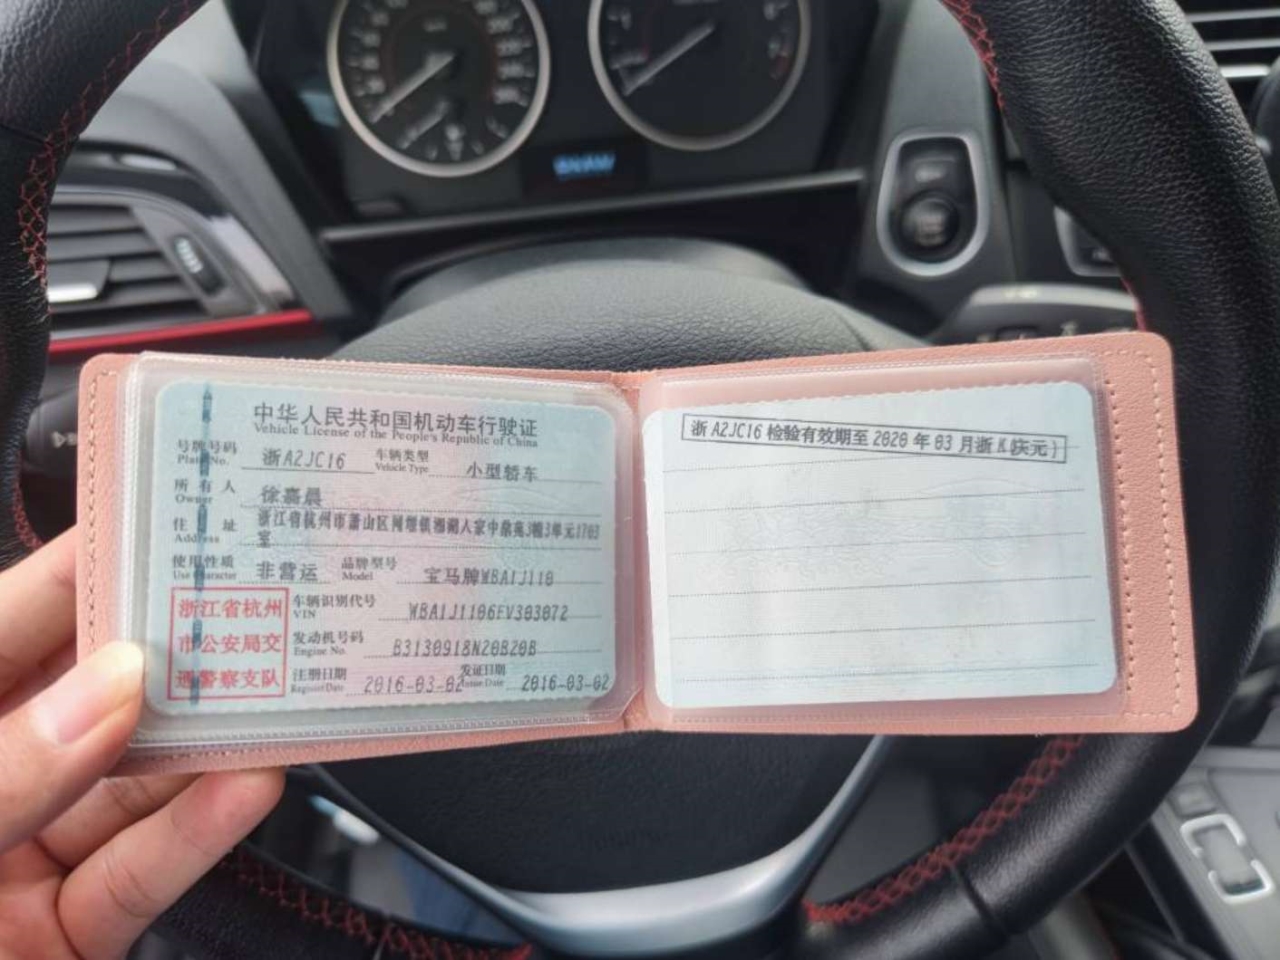 中华人民共和国机动车行驶证
Vehicle License of the People's Republic of China
号牌号码 浙A2JC16 车辆类型 小型轿车
Plate No. Vehicle Type
所有人 徐嘉晨
Owner
住址 浙江省杭州市萧山区闻堰镇湘湖人家中鼎苑3幢3单元1703
Address 室
使用性质 非营运 品牌型号 宝马牌WBA1J110
Use Character Model
浙江省杭州 车辆识别代号 WBA1J1106FV303072
VIN
市公安局交 发动机号码 B3130918N20B20B
Engine No.
巡警察支队 注册日期 2016-03-02 发证日期 2016-03-02
Register Date Issue Date
浙A2JC16检验有效期至2020年03月浙K(庆元)